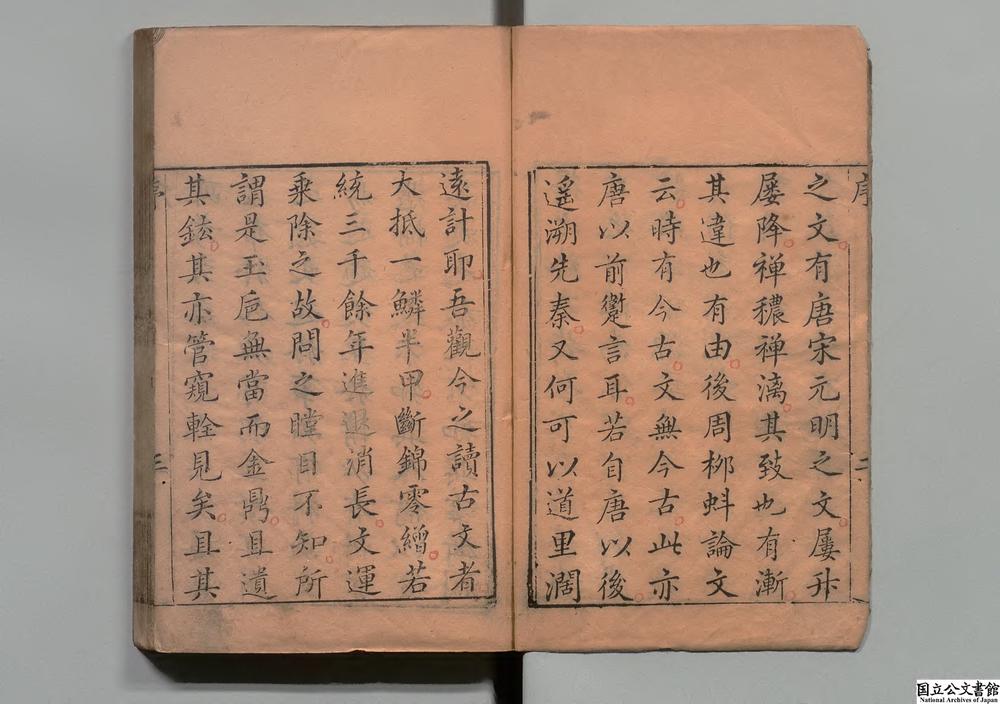 序
二
之文有唐宋元明之文屢升
屢降禅穠禅漓其致也有漸
其違也有由後周柳蚪論文
云時有今古文無今古此亦
唐以前躗言耳若自唐以後
遥溯先秦又何可以道里濶
遠計耶吾觀今之讀古文者
大抵一鱗半甲斷錦零繒若
統三千餘年進退消長文運
乘除之故問之瞠目不知所
謂是玉巵無當而金鼎且遺
其鉉其亦管窺輇見矣且其
序
三
国立公文書館
National Archives of Japan